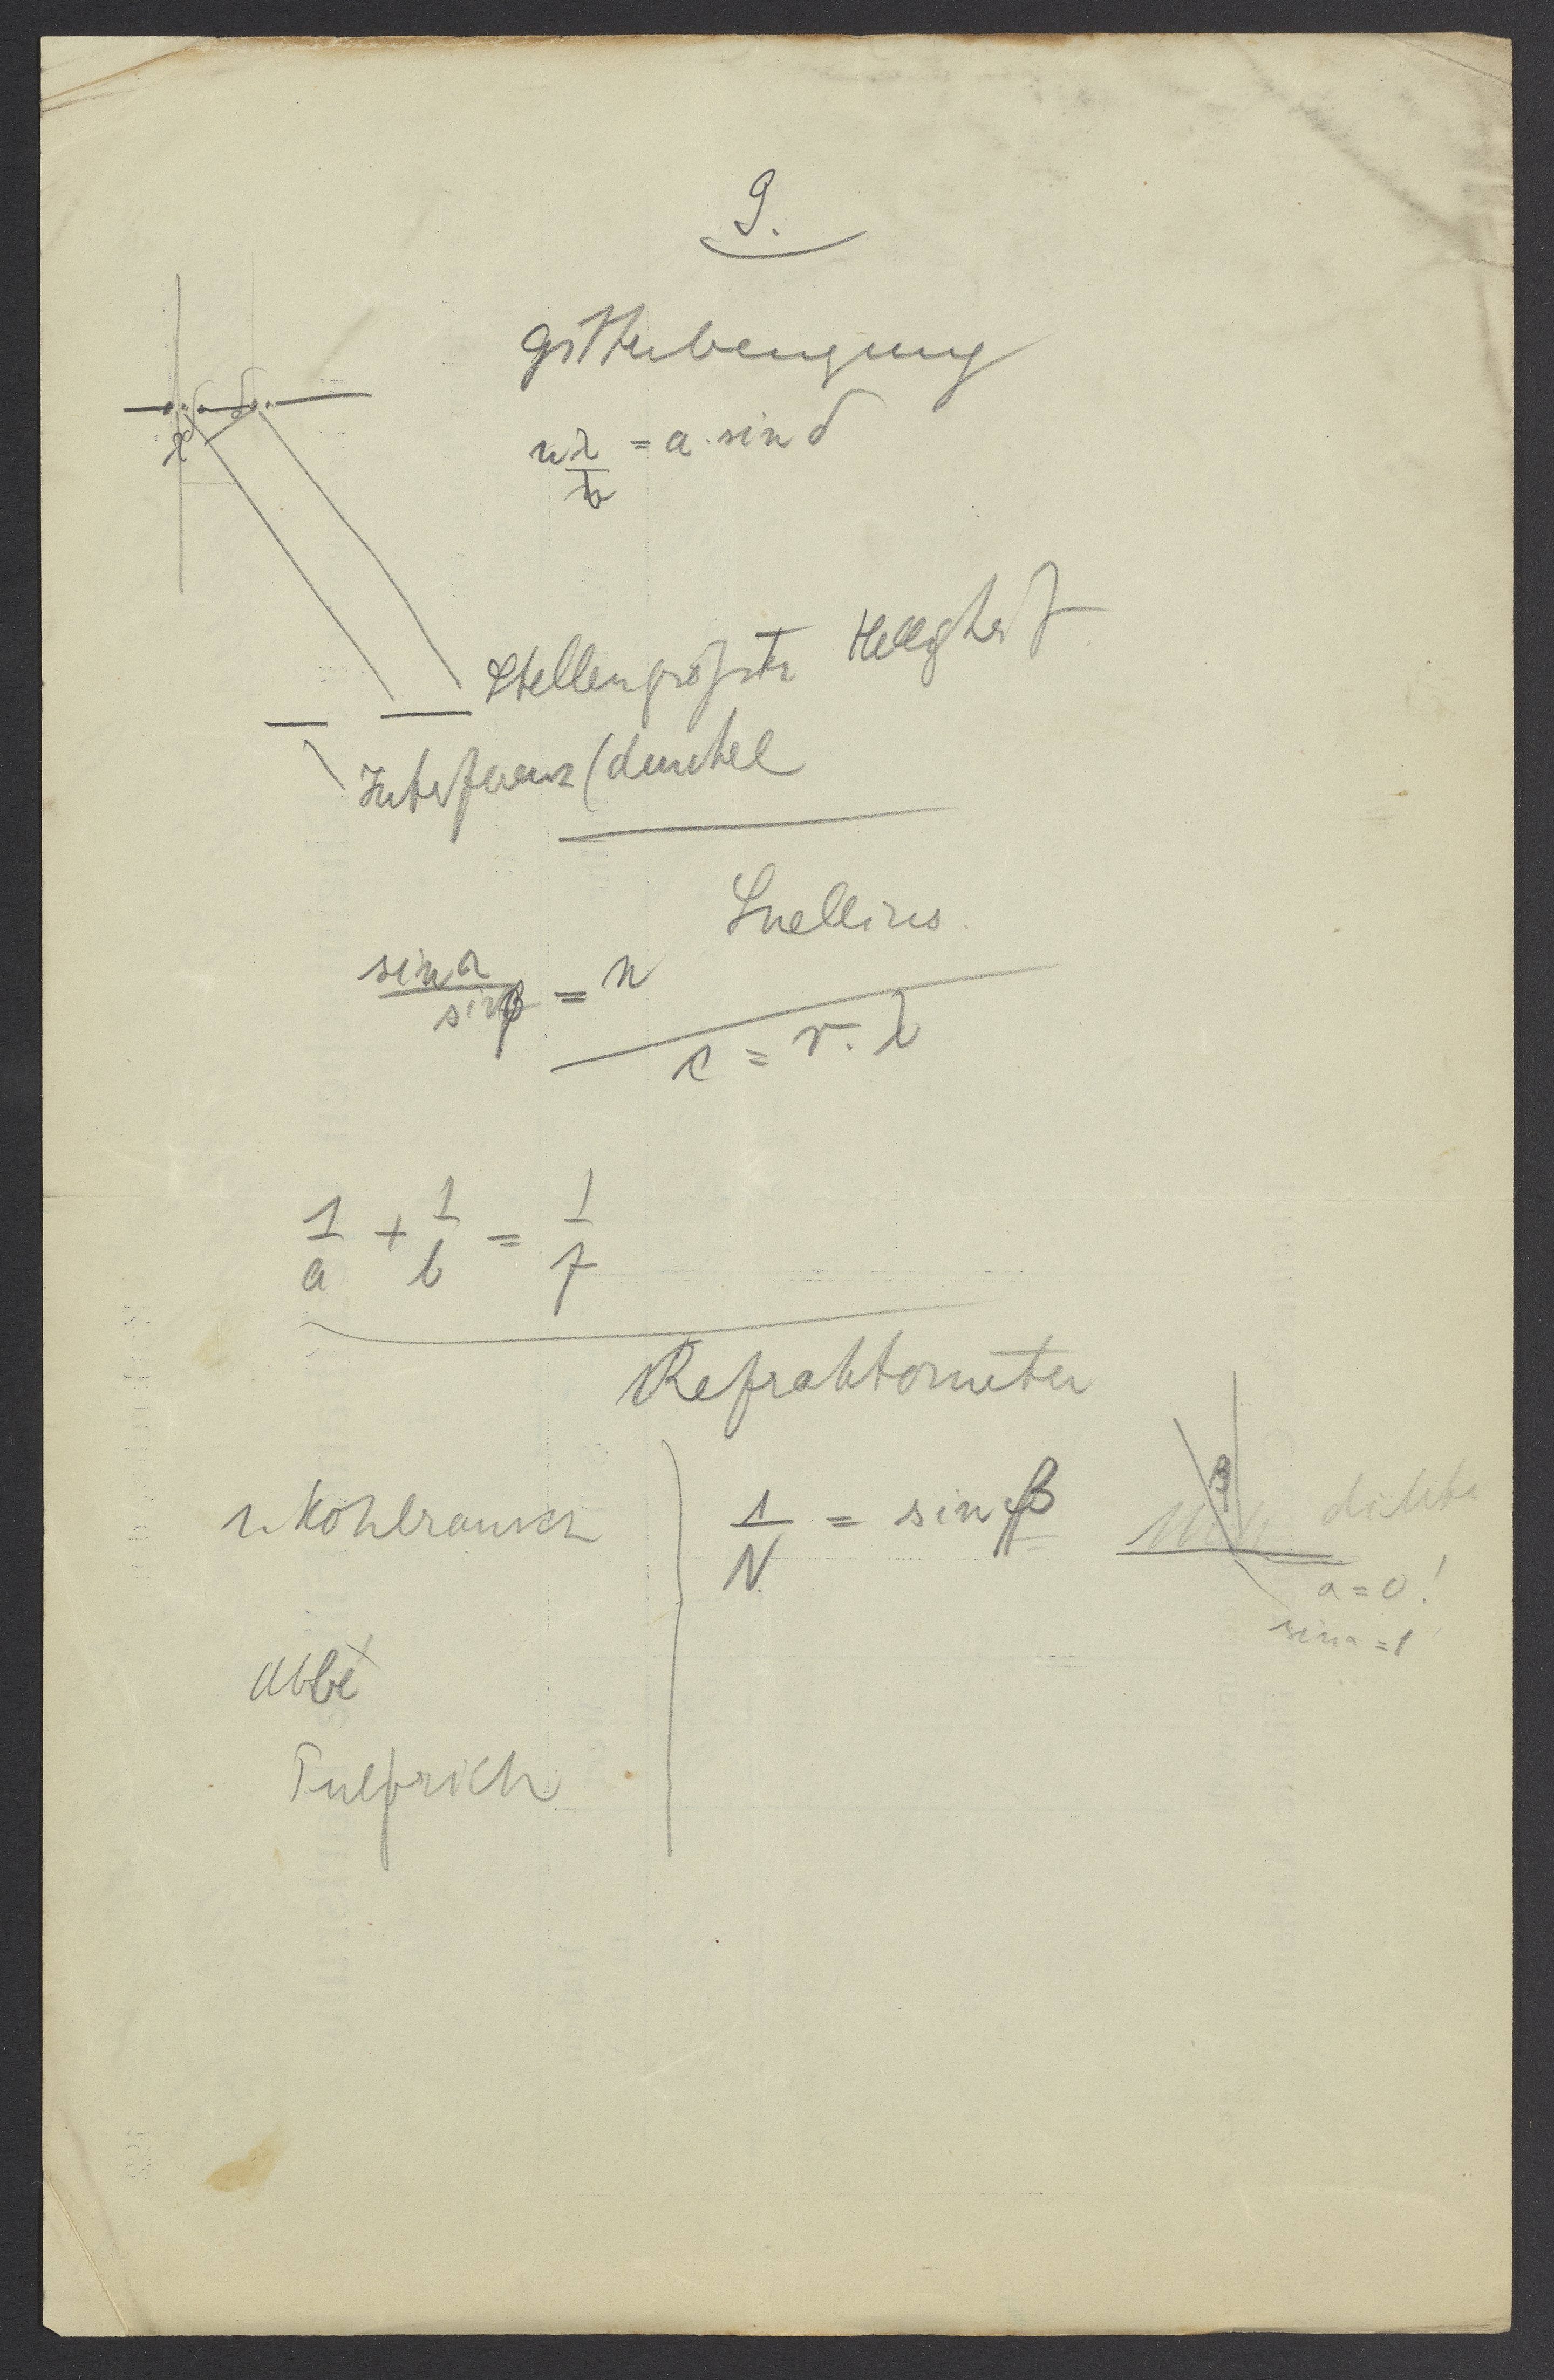 9.
Gitterbeugung
n λ/b = a · sin δ
δ δ
λ
Stellen größter Helligkeit
Interferenz (dunkel
Snellius.
sin α / sin β = n
c = ν · λ
1/a + 1/b = 1/f
Refraktometer
n. Kohlrausch
1/N = sin β
β
dichter
α = 0!
sin α = 1
Abbé
Pulfrich